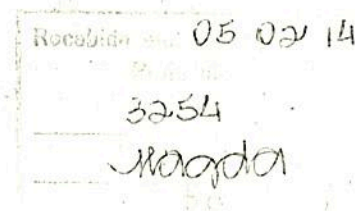 Recebido 05 02 14
3254
Magda